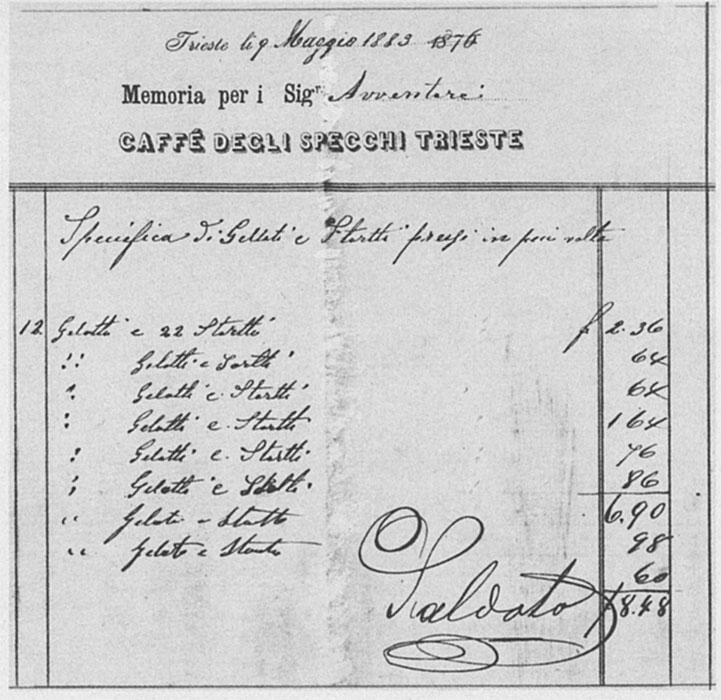 Trieste li 9 Maggio 1883 1876
Memoria per i Sigr. Avventori
CAFFÉ DEGLI SPECCHI TRIESTE
Specifica di Gellati e Startti presi in più volte
12 Gelatti e 22 Startti f 2.36
" Gelatti e Sortti 64
" Gelatti e Startti 64
" Gelatti e Startti 1 64
" Gelatti e Startti 76
" Gelatti e 86
6.90
" Gelati e 98
" Gelato e 60
f 8.48
Saldato